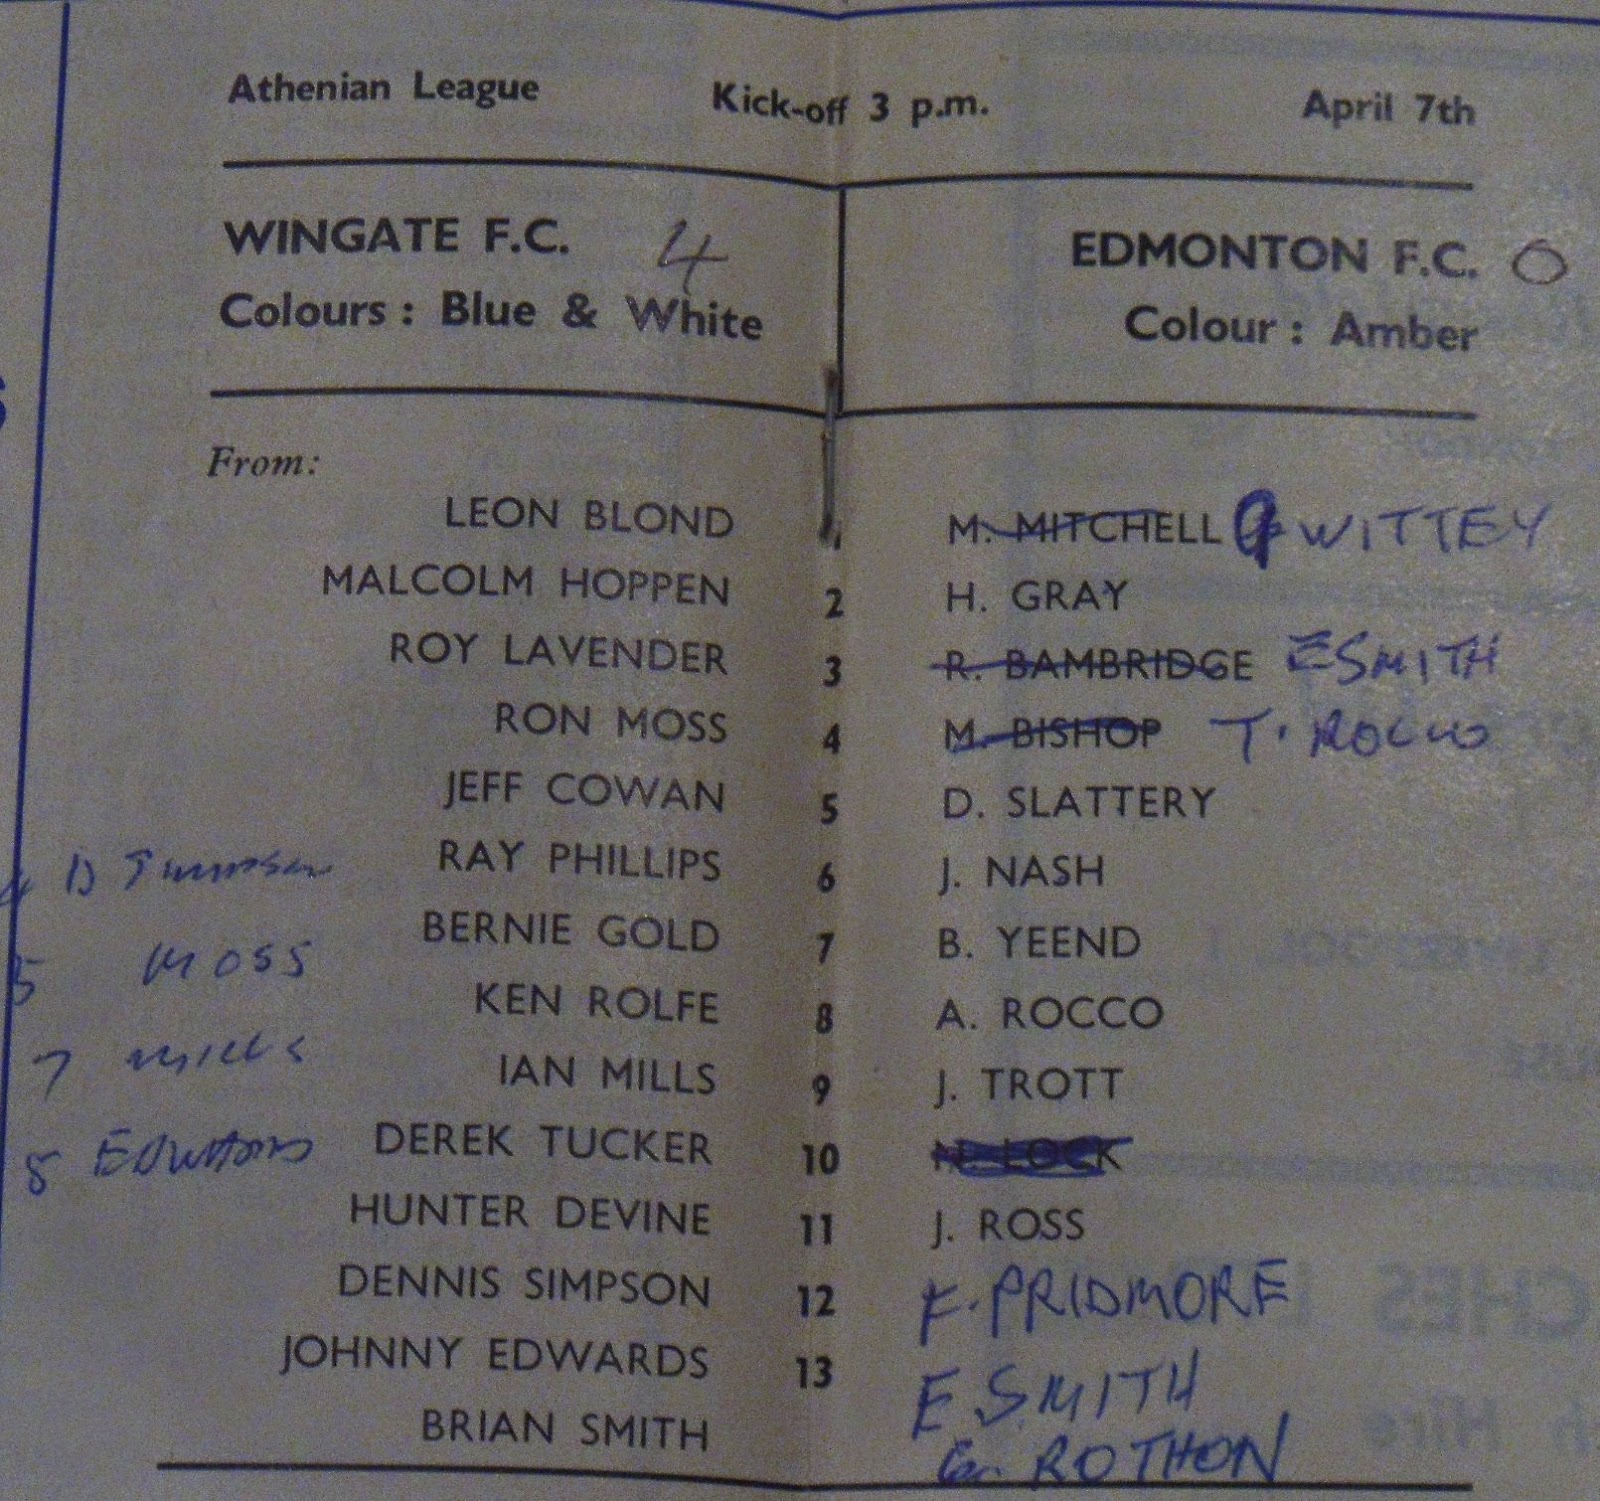 Athenian League Kick-off 3 p.m. April 7th
WINGATE F.C. 4 EDMONTON F.C. 0
Colours : Blue & White Colour : Amber
From:
LEON BLOND M. MITCHELL G WITTEY
MALCOLM HOPPEN 2 H. GRAY
ROY LAVENDER 3 R. BAMBRIDGE E SMITH
RON MOSS 4 M. BISHOP T. ROCCO
JEFF COWAN 5 D. SLATTERY
4 D RAY PHILLIPS 6 J. NASH
BERNIE GOLD 7 B. YEEND
5 MOSS
KEN ROLFE 8 A. ROCCO
7 MILLS IAN MILLS 9 J. TROTT
8 EDWARDS DEREK TUCKER 10 N. LOCK
HUNTER DEVINE 11 J. ROSS
DENNIS SIMPSON 12 F. PRIDMORE
JOHNNY EDWARDS 13 E. SMITH
BRIAN SMITH G. ROTHON